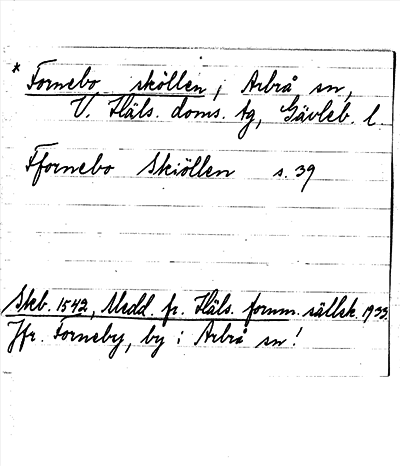 * Fornebo sköllen, i Arbrå sn,
V. Häls. doms. tg, Gävleb. l.
Ffornebo Skiöllen s. 39
Skb. 1542, Medd. fr. Häls. fornm. sällsk. 1933.
Jfr. Forneby, by i Arbrå sn!